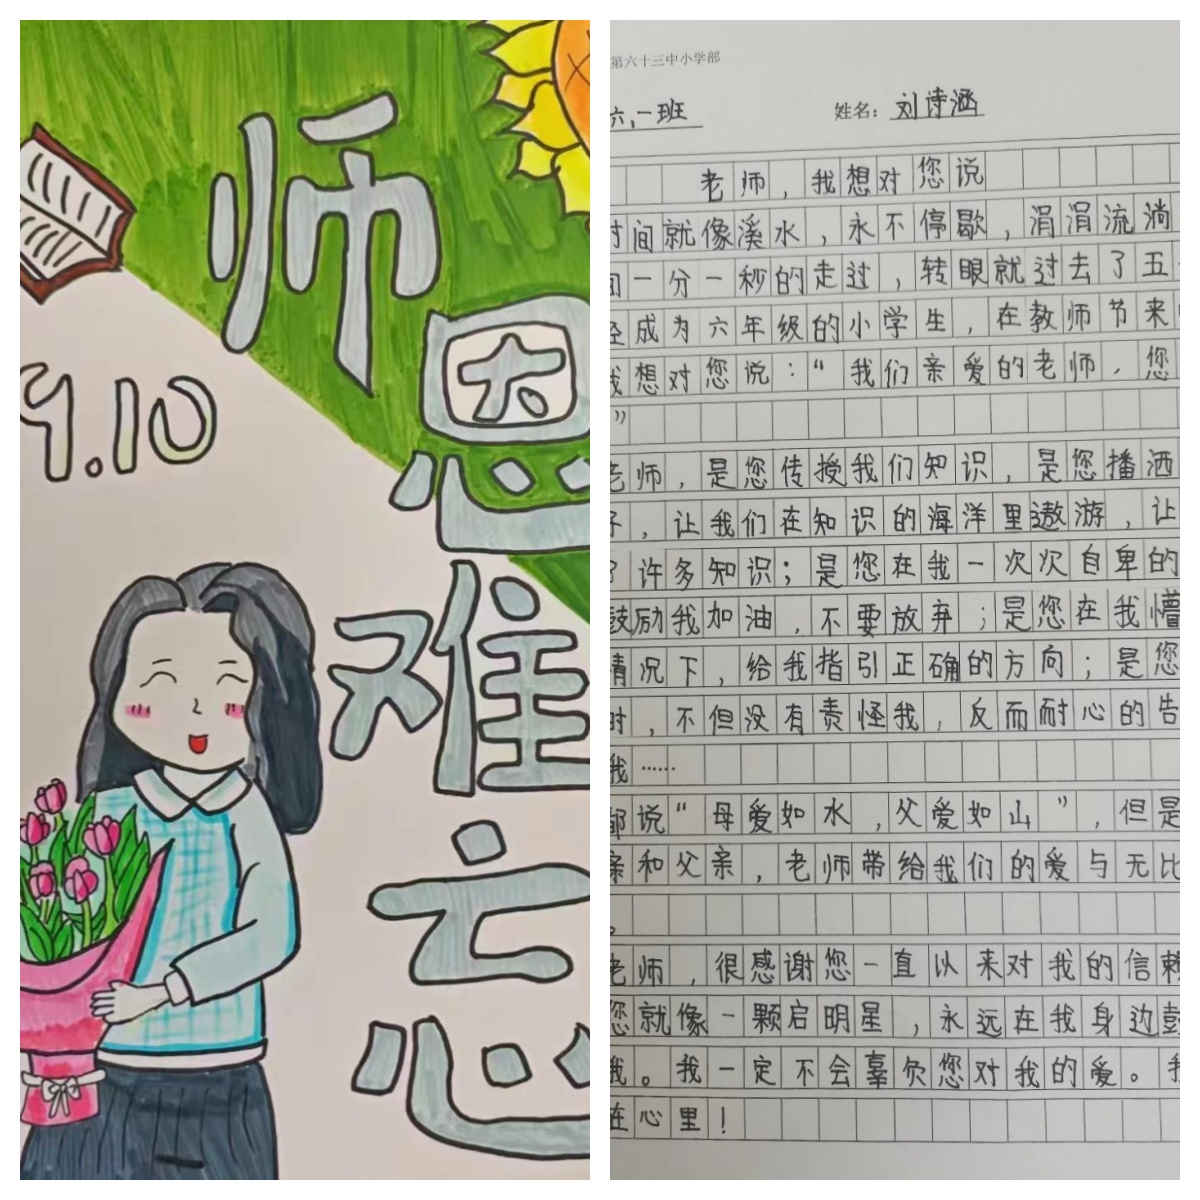 师恩难忘
9.10
第六十三中小学部
六,一班 姓名:刘诗涵
老师,我想对您说
时间就像溪水,永不停歇,涓涓流淌
间一分一秒的走过,转眼就过去了五
经成为六年级的小学生,在教师节来
我想对您说:“我们亲爱的老师,您
”
老师,是您传授我们知识,是您播洒
子,让我们在知识的海洋里遨游,让
了许多知识;是您在我一次次自卑的
鼓励我加油,不要放弃;是您在我懵
情况下,给我指引正确的方向;是您
时,不但没有责怪我,反而耐心的告
我……
都说“母爱如水,父爱如山”,但是
亲和父亲,老师带给我们的爱与无比
。
老师,很感谢您一直以来对我的信赖
您就像一颗启明星,永远在我身边鼓
我。我一定不会辜负您对我的爱。我
在心里!